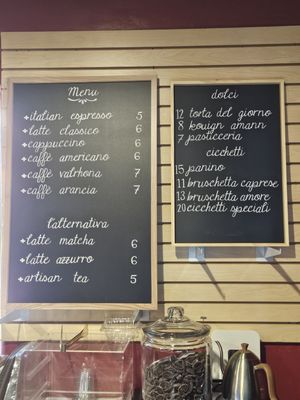 Menu
+italian espresso 5
+latte classico 6
+cappuccino 6
+caffè americano 6
+caffè valrhona 7
+caffè arancia 7
l'alternativa
+latte matcha 6
+latte azzurro 6
+artisan tea 5
dolci
12 torta del giorno
8 kouign amann
7 pasticceria
cicchetti
15 panino
11 bruschetta caprese
13 bruschetta amore
20 cicchetti speciali